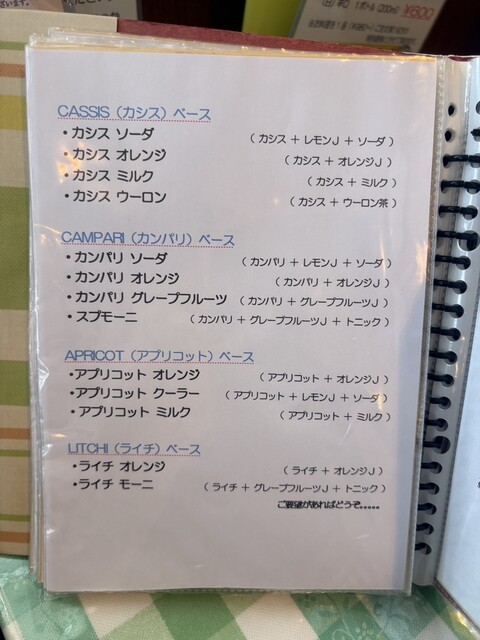 ございます。
(白) 辛口 1ボトル (200ml) ¥600
CASSIS（カシス）ベース
・カシス ソーダ （ カシス ＋ レモンＪ ＋ ソーダ ）
・カシス オレンジ （ カシス ＋ オレンジＪ ）
・カシス ミルク （ カシス ＋ ミルク ）
・カシス ウーロン （ カシス ＋ ウーロン茶 ）
CAMPARI（カンパリ）ベース
・カンパリ ソーダ （ カンパリ ＋ レモンＪ ＋ ソーダ ）
・カンパリ オレンジ （ カンパリ ＋ オレンジＪ ）
・カンパリ グレープフルーツ （ カンパリ ＋ グレープフルーツＪ ）
・スプモーニ （ カンパリ ＋ グレープフルーツＪ ＋ トニック ）
APRICOT（アプリコット）ベース
・アプリコット オレンジ （ アプリコット ＋ オレンジＪ ）
・アプリコット クーラー （ アプリコット ＋ レモンＪ ＋ ソーダ ）
・アプリコット ミルク （ アプリコット ＋ ミルク ）
LITCHI（ライチ）ベース
・ライチ オレンジ （ ライチ ＋ オレンジＪ ）
・ライチ モーニ （ ライチ ＋ グレープフルーツＪ ＋ トニック ）
ご要望があればどうぞ.....